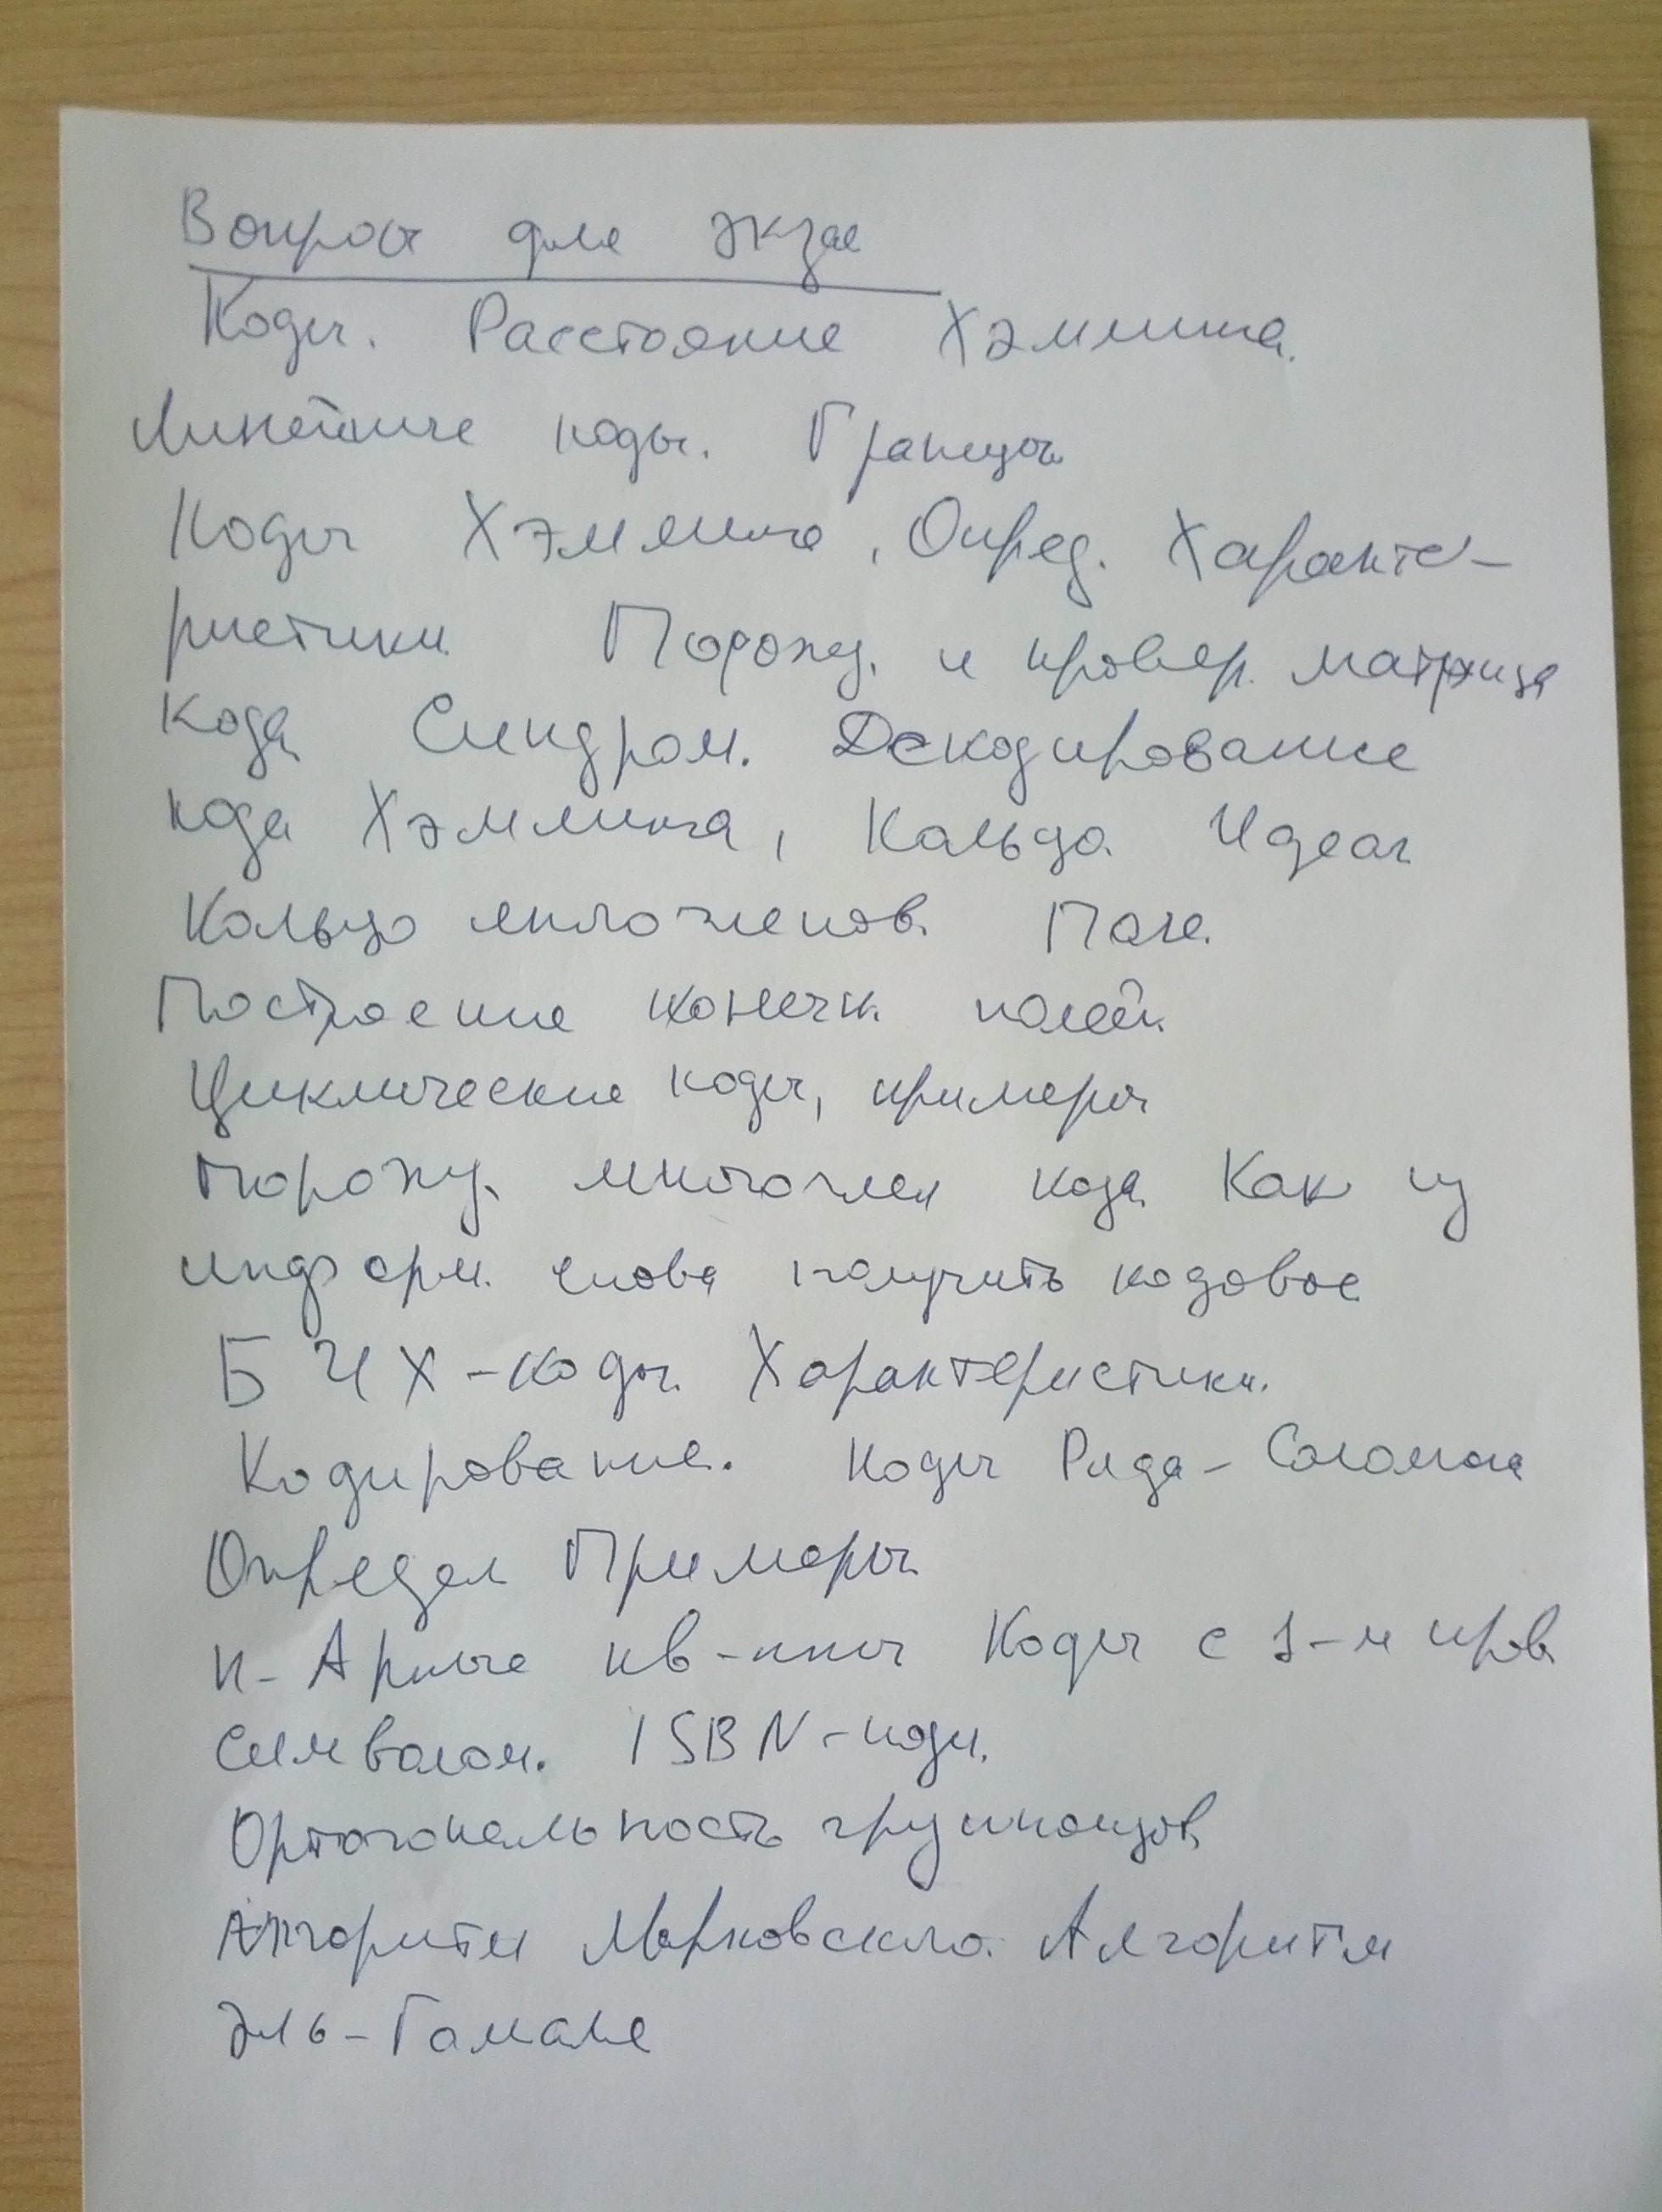 Вопросы для экза
Коды. Расстояние Хэмминга.
Линейные коды. Границы
Коды Хэмминга, Опред. Характе-
ристики Порожд. и провер. матрица
кода Синдром. Декодирование
кода Хэмминга, Кольца Идеал
Кольцо многочленов. Поле.
Построение конечн. полей.
Циклические коды, примеры
Порожд. многочлен кода Как из
информ. слова получить кодовое
БЧХ-коды. Характеристики.
Кодирование. Коды Рида-Соломона
Определ Примеры
n-Арные кв-ппы Коды с 1-м пров
символом. ISBN-коды.
Ортогональность группоидов
Алгоритм Марковского. Алгоритм
Эль-Гамаля